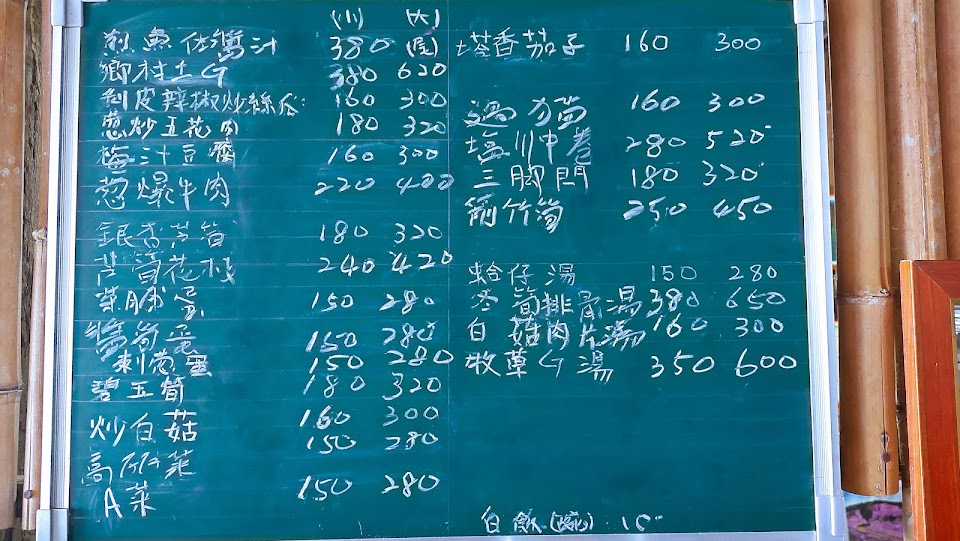 (小) (大)
煎魚佐醬汁 380 (尾)
鄉村土G 380 620
剝皮辣椒炒絲瓜 160 300
蔥炒五花肉 180 320
梅汁豆腐 160 300
蔥爆牛肉 220 400
銀杏芦筍 180 320
苦瓜花枝 240 420
菜脯蛋 150 280
鹽筍蛋 150 280
刺蔥蛋 150 280
碧玉筍 180 320
炒白菇 160 300
高麗菜 150 280
A菜 150 280
塔香茄子 160 300
過貓 160 300
塩川中卷 280 520
三腳閂 180 320
箭竹筍 250 450
蛤仔湯 150 280
冬筍排骨湯 380 650
白菇肉片湯 160 300
牧草G湯 350 600
白飯(碗) 15